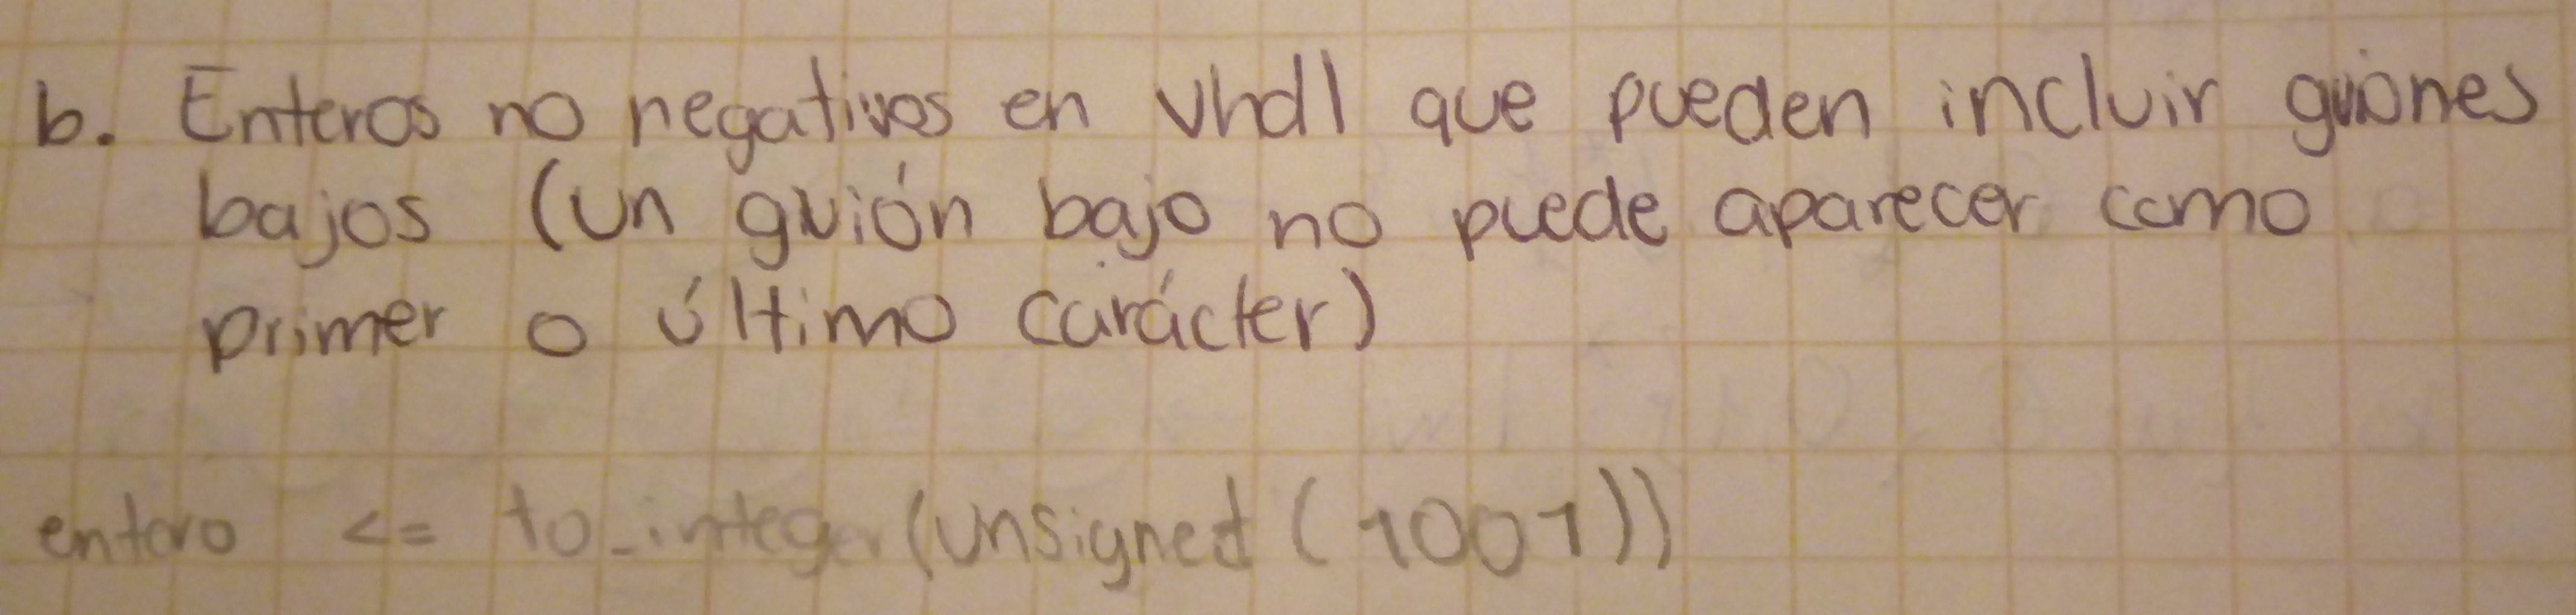 b. Enteros no negativos en vhdl que pueden incluir guiones
bajos (un guión bajo no puede aparecer como
primer o último carácter)
entero <= to_integer(unsigned(1001))